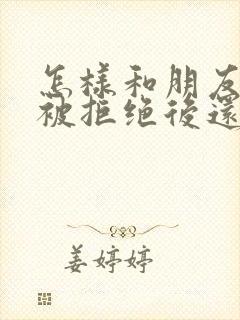 怎樣和朋友
被拒绝後還
姜婷婷